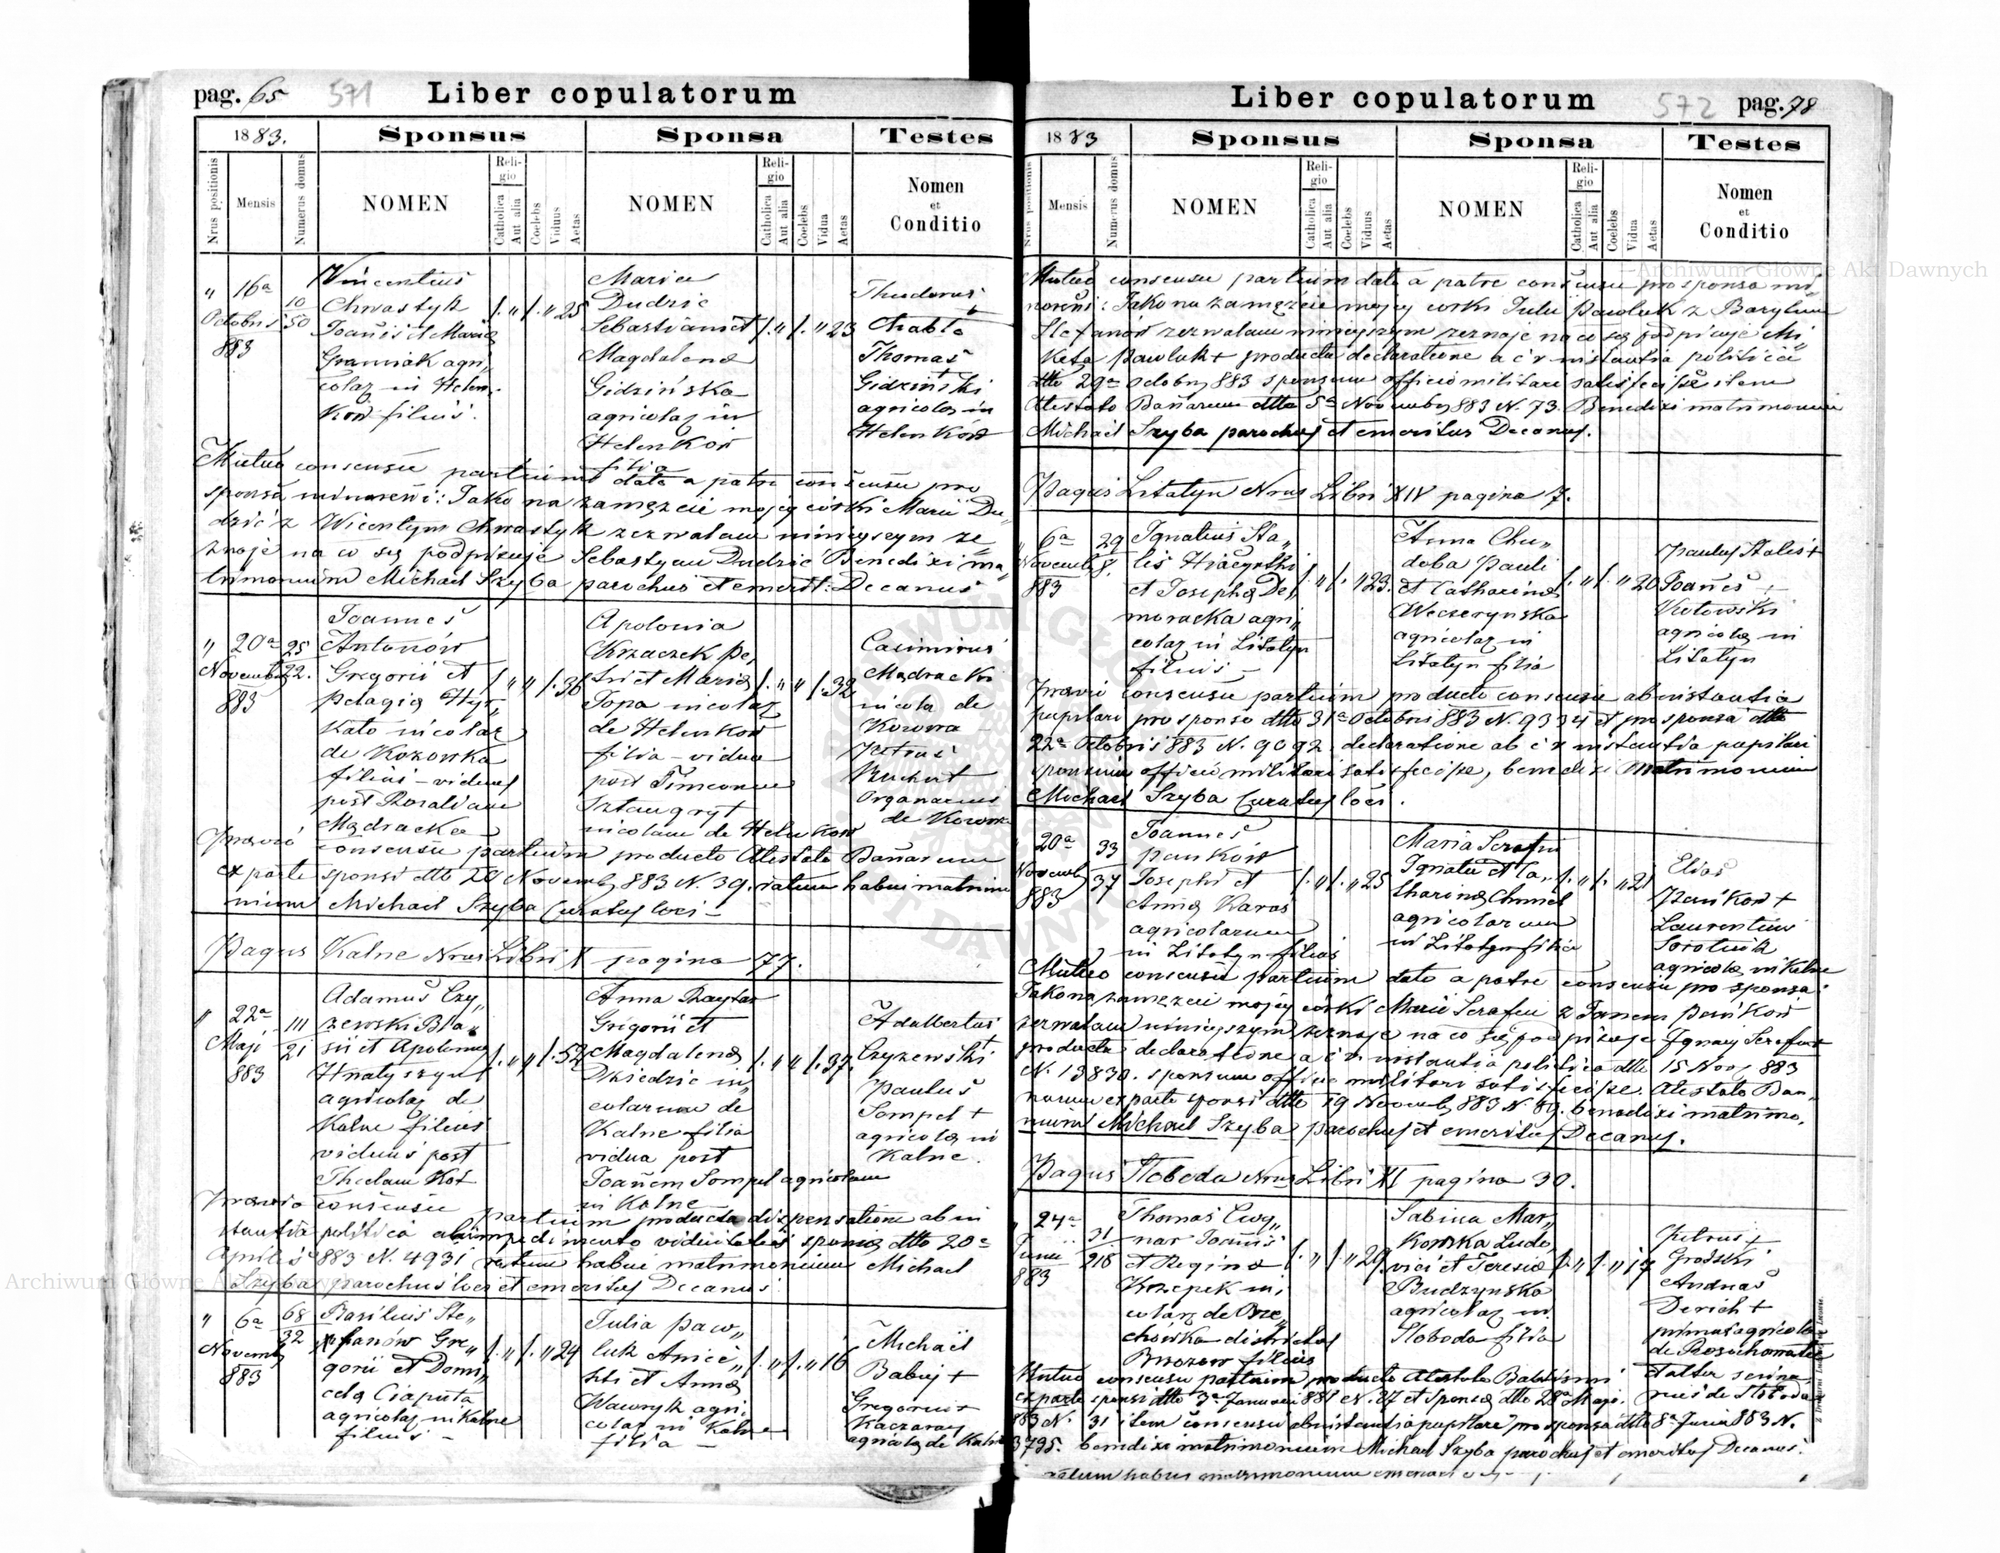 pag. 65
571
Liber copulatorum
1883.
Sponsus
Sponsa
Testes
Nrus positionis
Mensis
Numerus domus
NOMEN
Religio
Catholica
Aut alia
Coelebs
Viduus
Aetas
NOMEN
Religio
Catholica
Aut alia
Coelebs
Vidua
Aetas
Nomen
et
Conditio
" 16a
Octobris
883
10
50
Vincentius
Chwastyk
Joañis et Mariæ
agri,
colaz in Helen,
ków filius.
25
Maria
Dudzic
Sebastiani et
Magdalenæ
Gidzińska
agricolaz in
Helenków
filia
23
Theodorus
Chabło
Thomas
Gidziński
agricolæ in
Helenków
Mutuo consensu partium dato a patre consensu pro
sponsa minoreni: Jako na zamęzcie mojej córki Marii Du,
dzic z Wicentym Chwastyk zezwalam niniejszym ze,
znaje na co się podpisuje Sebastyan Dudzic Benedixi ma,
trimonium Michael Szyba parochus et emerit: Decanus
" 20a
Novemb
883
25
22.
Joannes
Antonów
Gregorii et
Pelagiæ Hyr,
kało incolaz
de Kozowka
filius - viduus
post Rosaliam
Mądracka
36
Apolonia
Krzaczek Pe,
tri et Mariæ
Topa incolaz
de Helenków
filia - vidua
post Timeonem
Sztangryt
incolam de Helenków
32
Casimirus
Mądracki
incola de
Kozowa
Petrus
Organarius
de Kozowa
Praevio consensu partium producto Atestato Bañarum
ex parte sponsi dtto 20 Novemb 883 N. 39. ratum habui matrimo
nium Michael Szyba Curatus loci -
Pagus Kalne Nrus Libri X pagina 77.
" 22a
Maji
883
111
21
Adamus Czy,
zewski Bla,
sii et Apoloniæ
Hnatyszyn
agricolaz de
Kalne filius
viduus post
Theclam Kot
52
Anna Raytar
Grigorii et
Magdalenæ
Dziedzic in,
colarum de
Kalne filia
vidua post
Joañem Sompel agricolam
in Kalne
37.
Adalbertus
Czyzewski
Paulus
Sompel +
agricolæ in
Kalne.
Praevio consensu partium producta dispensatione ab in
stantia politica ab impedimento viduitatis sponsæ dtto 20a
Aprilis 883 N. 4931 ratum habui matrimonium Michael
Szyba parochus loci et emeritus Decanus
" 6a
Novemb
883
68
32
Basilius Ste,
fanów Gre,
gorii et Domi,
celæ Ciaputa
agricolaz in Kalne
filius -
24
Julia Paw,
luk Anice,
ti et Annæ
Wawryk agri,
colaz in Kalne
filia -
16
Michael
Babij +
Gregorius
Kaczaraj
agricolæ de Kalne
Liber copulatorum
572
pag. 78
1883
Sponsus
Sponsa
Testes
Nrus positionis
Mensis
Numerus domus
NOMEN
Religio
Catholica
Aut alia
Coelebs
Viduus
Aetas
NOMEN
Religio
Catholica
Aut alia
Coelebs
Vidua
Aetas
Nomen
et
Conditio
Mutuo consensu partium dato a patre consensu pro sponsa mi
noreni: Jako na zamęzcie mojej corki Julii Pawluk z Basylim
Stefanow zezwalam niniejszym zeznaje na co się podpisuje Mi
keta Pawluk + producta declaratione a c r instantia politica
dtto 29a Octobris 883 sponsum officio militari satisfecisse item
Atestato Bañarum dtto 5a Novemb 883 N. 73. Benedixi matrimonium
Michael Szyba parochus et emeritus Decanus.
Pagus Litatyn Nrus Libri XIV pagina 7.
" 6a
Novemb
883
29
8.
Ignatius Sta,
lis Hiacynthi
et Josephæ De,
moracka agri,
colaz in Litatyn
filius -
23.
Anna Chu,
doba Pauli
et Catharinæ
Weczerynska
agricolaz in
Litatyn filia
20
Paulus Stalis +
Joañes +
Kotowski
agricolæ in
Litatyn
Praevio consensu partium producto consensu ab instantia
pupilari pro sponso dtto 31a Octobris 883 N. 9334 et pro sponsa dtto
22a Octobris 883 N. 9092. declaratione ab c r instantia pupilari
sponsum officio militari satisfecisse, benedixi matrimonium
Michael Szyba Curatus loci.
20a
Novemb
883
33
37
Joannes
Pańków
Josephi et
Annæ Karas
agricolarum
in Litatyn filius
25
Maria Serafin
Ignatii et Ca,
tharinæ Chmiel
agricolarum
in Litatyn filia
21
Elias
Pańków +
Laurentius
Sorotnik
agricolæ in Kalne
Mutuo consensu partium dato a patre consensu pro sponsa:
Jako na zamęzcie mojej córki Marii Serafin z Janem Pańków
zezwalam niniejszym zeznaje na co się podpisuje Ignacy Serafin
producta declaratione a c r instantia politica dtto 15 Nov. 883
N. 13830. sponsum officio militari satisfecisse. Atestato Ban,
narum ex parte sponsi dtto 19 Novemb 883 N. 89. benedixi matrimo,
nium Michael Szyba parochus et emeritus Decanus.
Pagus Słoboda Nrus Libri XI pagina 30.
" 24a
Junii
883
31
218
Thomas Cug,
nar Joañis
et Reginæ
Krzepek in,
colaz de Brze,
chówka districtus
Brzozow filius
29
Sabina Mar,
kowska Ludo,
vici et Teresiæ
Budzynska
agricolaz in
Słoboda filia
17
Petrus +
Grodski
Andreas
Derich +
primus agricola
de Rosochowatec
et alter
de Słoboda
Mutuo consensu partium producto Atestato Babtismi
ex parte sponsi dtto 3a Januarii 881 N. 27 et sponsæ dtto 28a Maji.
883 N. 31 item consensu ab instantia pupilare pro sponsa dtto 8a Junii 883 N.
3795. benedixi matrimonium Michael Szyba parochus et emeritus Decanus.
Archiwum Główne Akt Dawnych
Archiwum Główne Akt Dawnych